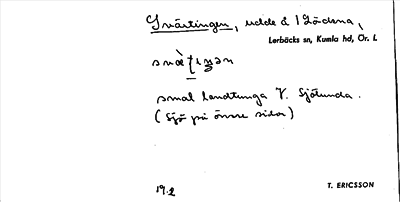 Svärtingen, udde i Lådsna,
Lerbäcks sn, Kumla hd, Ör. L
smal landtunga V. Sjölunda.
(Sjö på ömse sidor)
19.2
T. ERICSSON